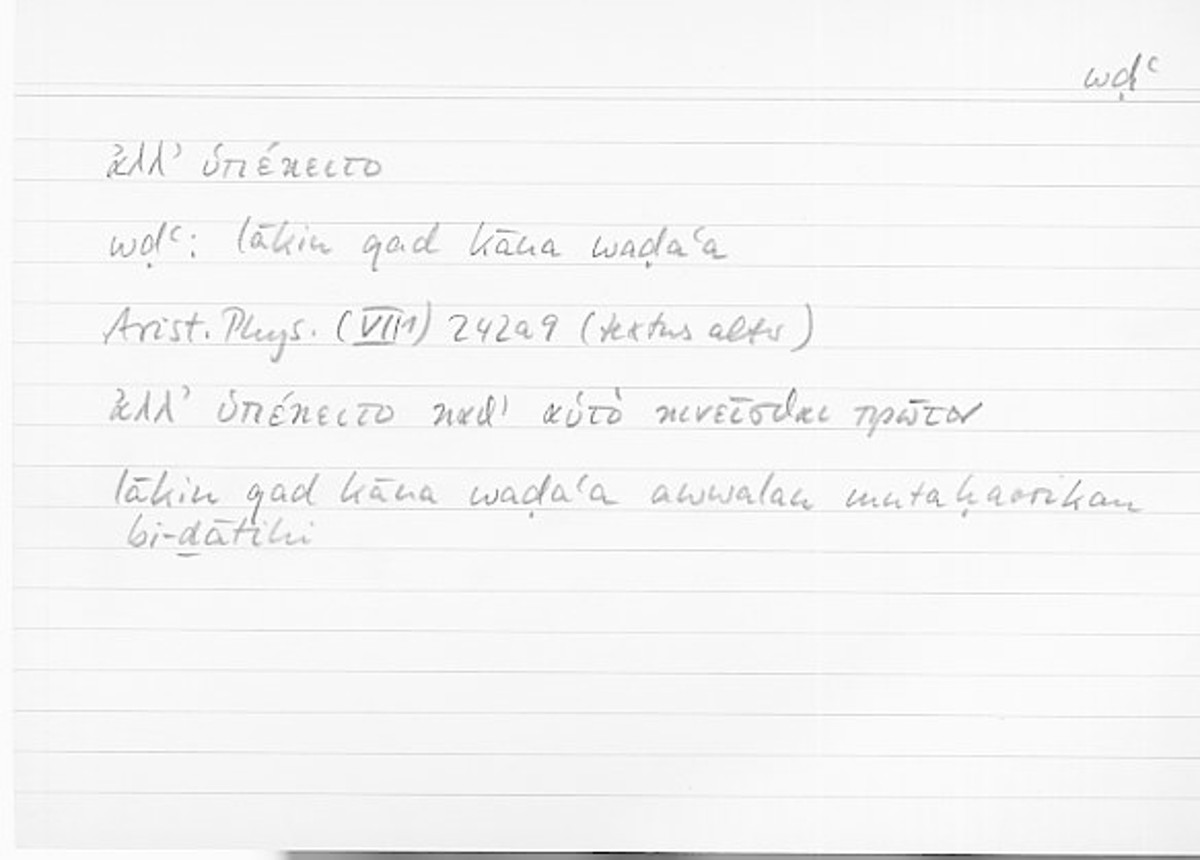 wḍʿ
ἀλλ' ὑπέκειτο
wḍʿ: lākin qad kāna waḍaʿa
Arist. Phys. (VII1) 242a9 (textus alter)
ἀλλ' ὑπέκειτο καθ' αὑτὸ κινεῖσθαι πρῶτον
lākin qad kāna waḍaʿa awwalan mutaḥarrikan
bi-ḏātihi